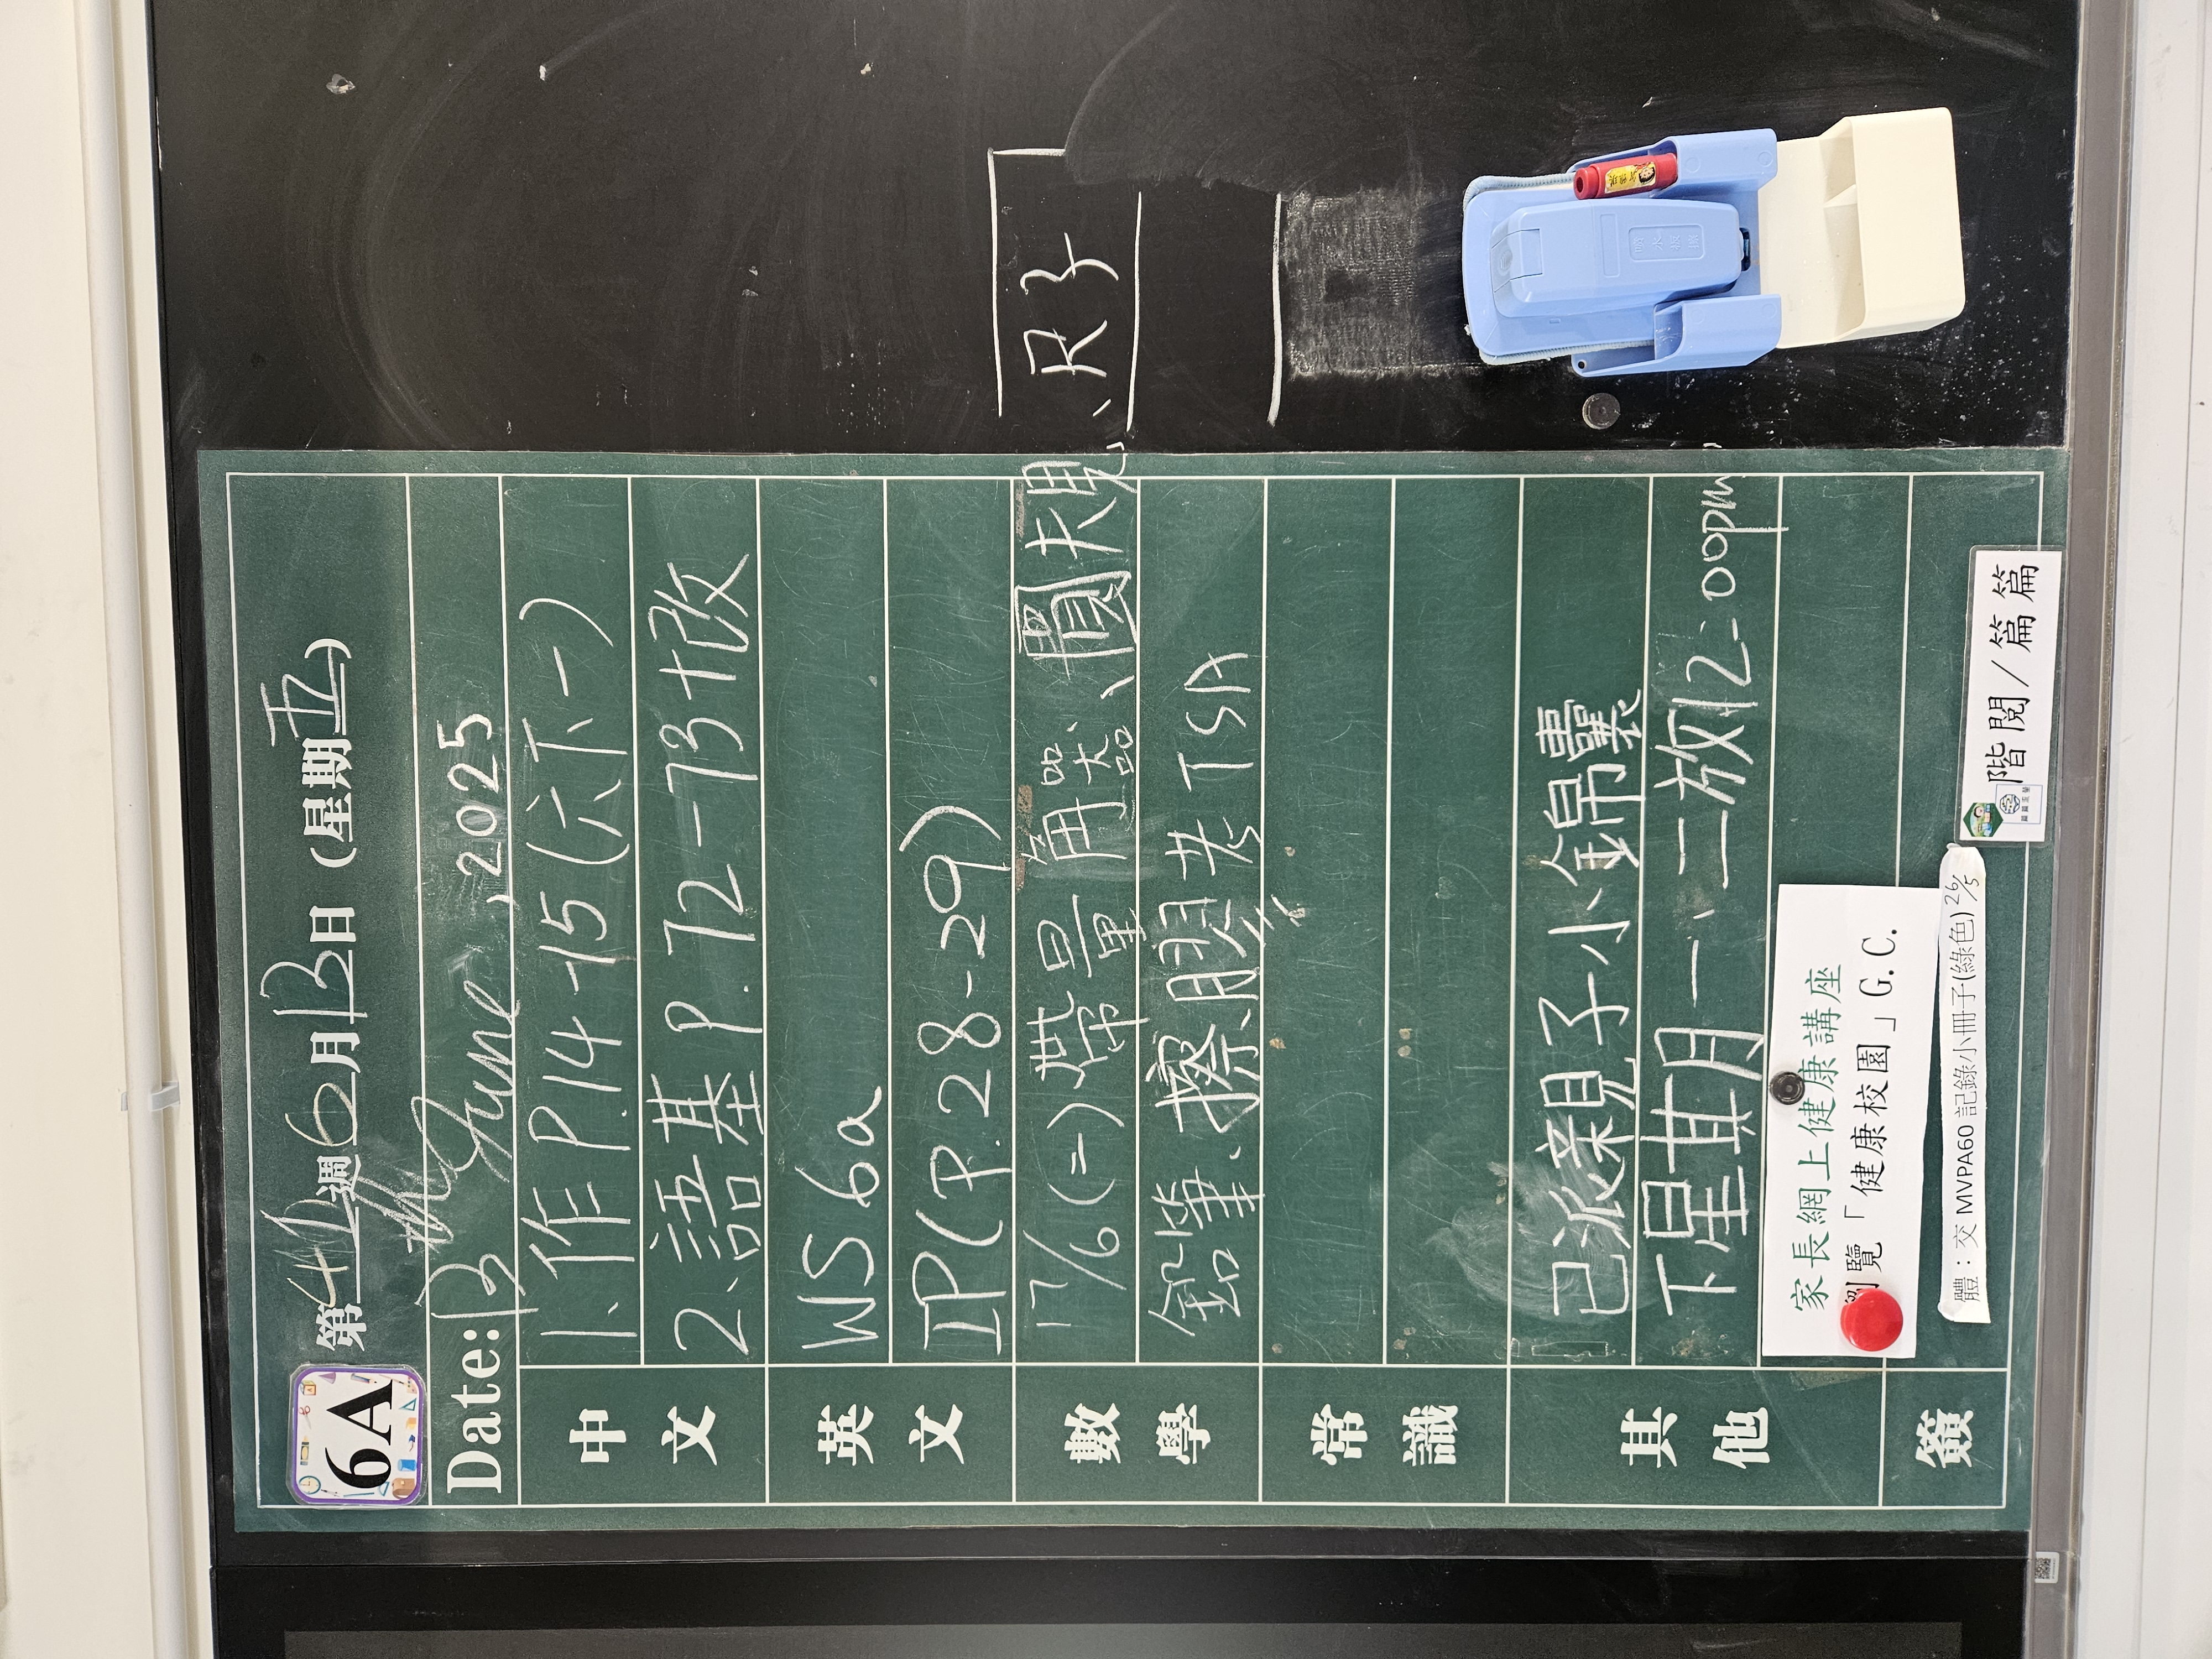 6A
第40週6月13日 (星期五)
Date: 13 June, 2025
中文
1、作 P.14-15 (六下一)
2、語基 P.72-73+改
英文
WS 6a
IP (P.28-29)
數學
17/6 (二) 帶量角器、圓規、尺子
鉛筆、擦膠考TSA
常識
其他
已派親子小錦囊
下星期一、二放12:00pm
家長網上健康講座
瀏覽「健康校園」G.C.
體：交 MVPA60 記錄小冊子(綠色) 26/5
簽
階閱/篇篇